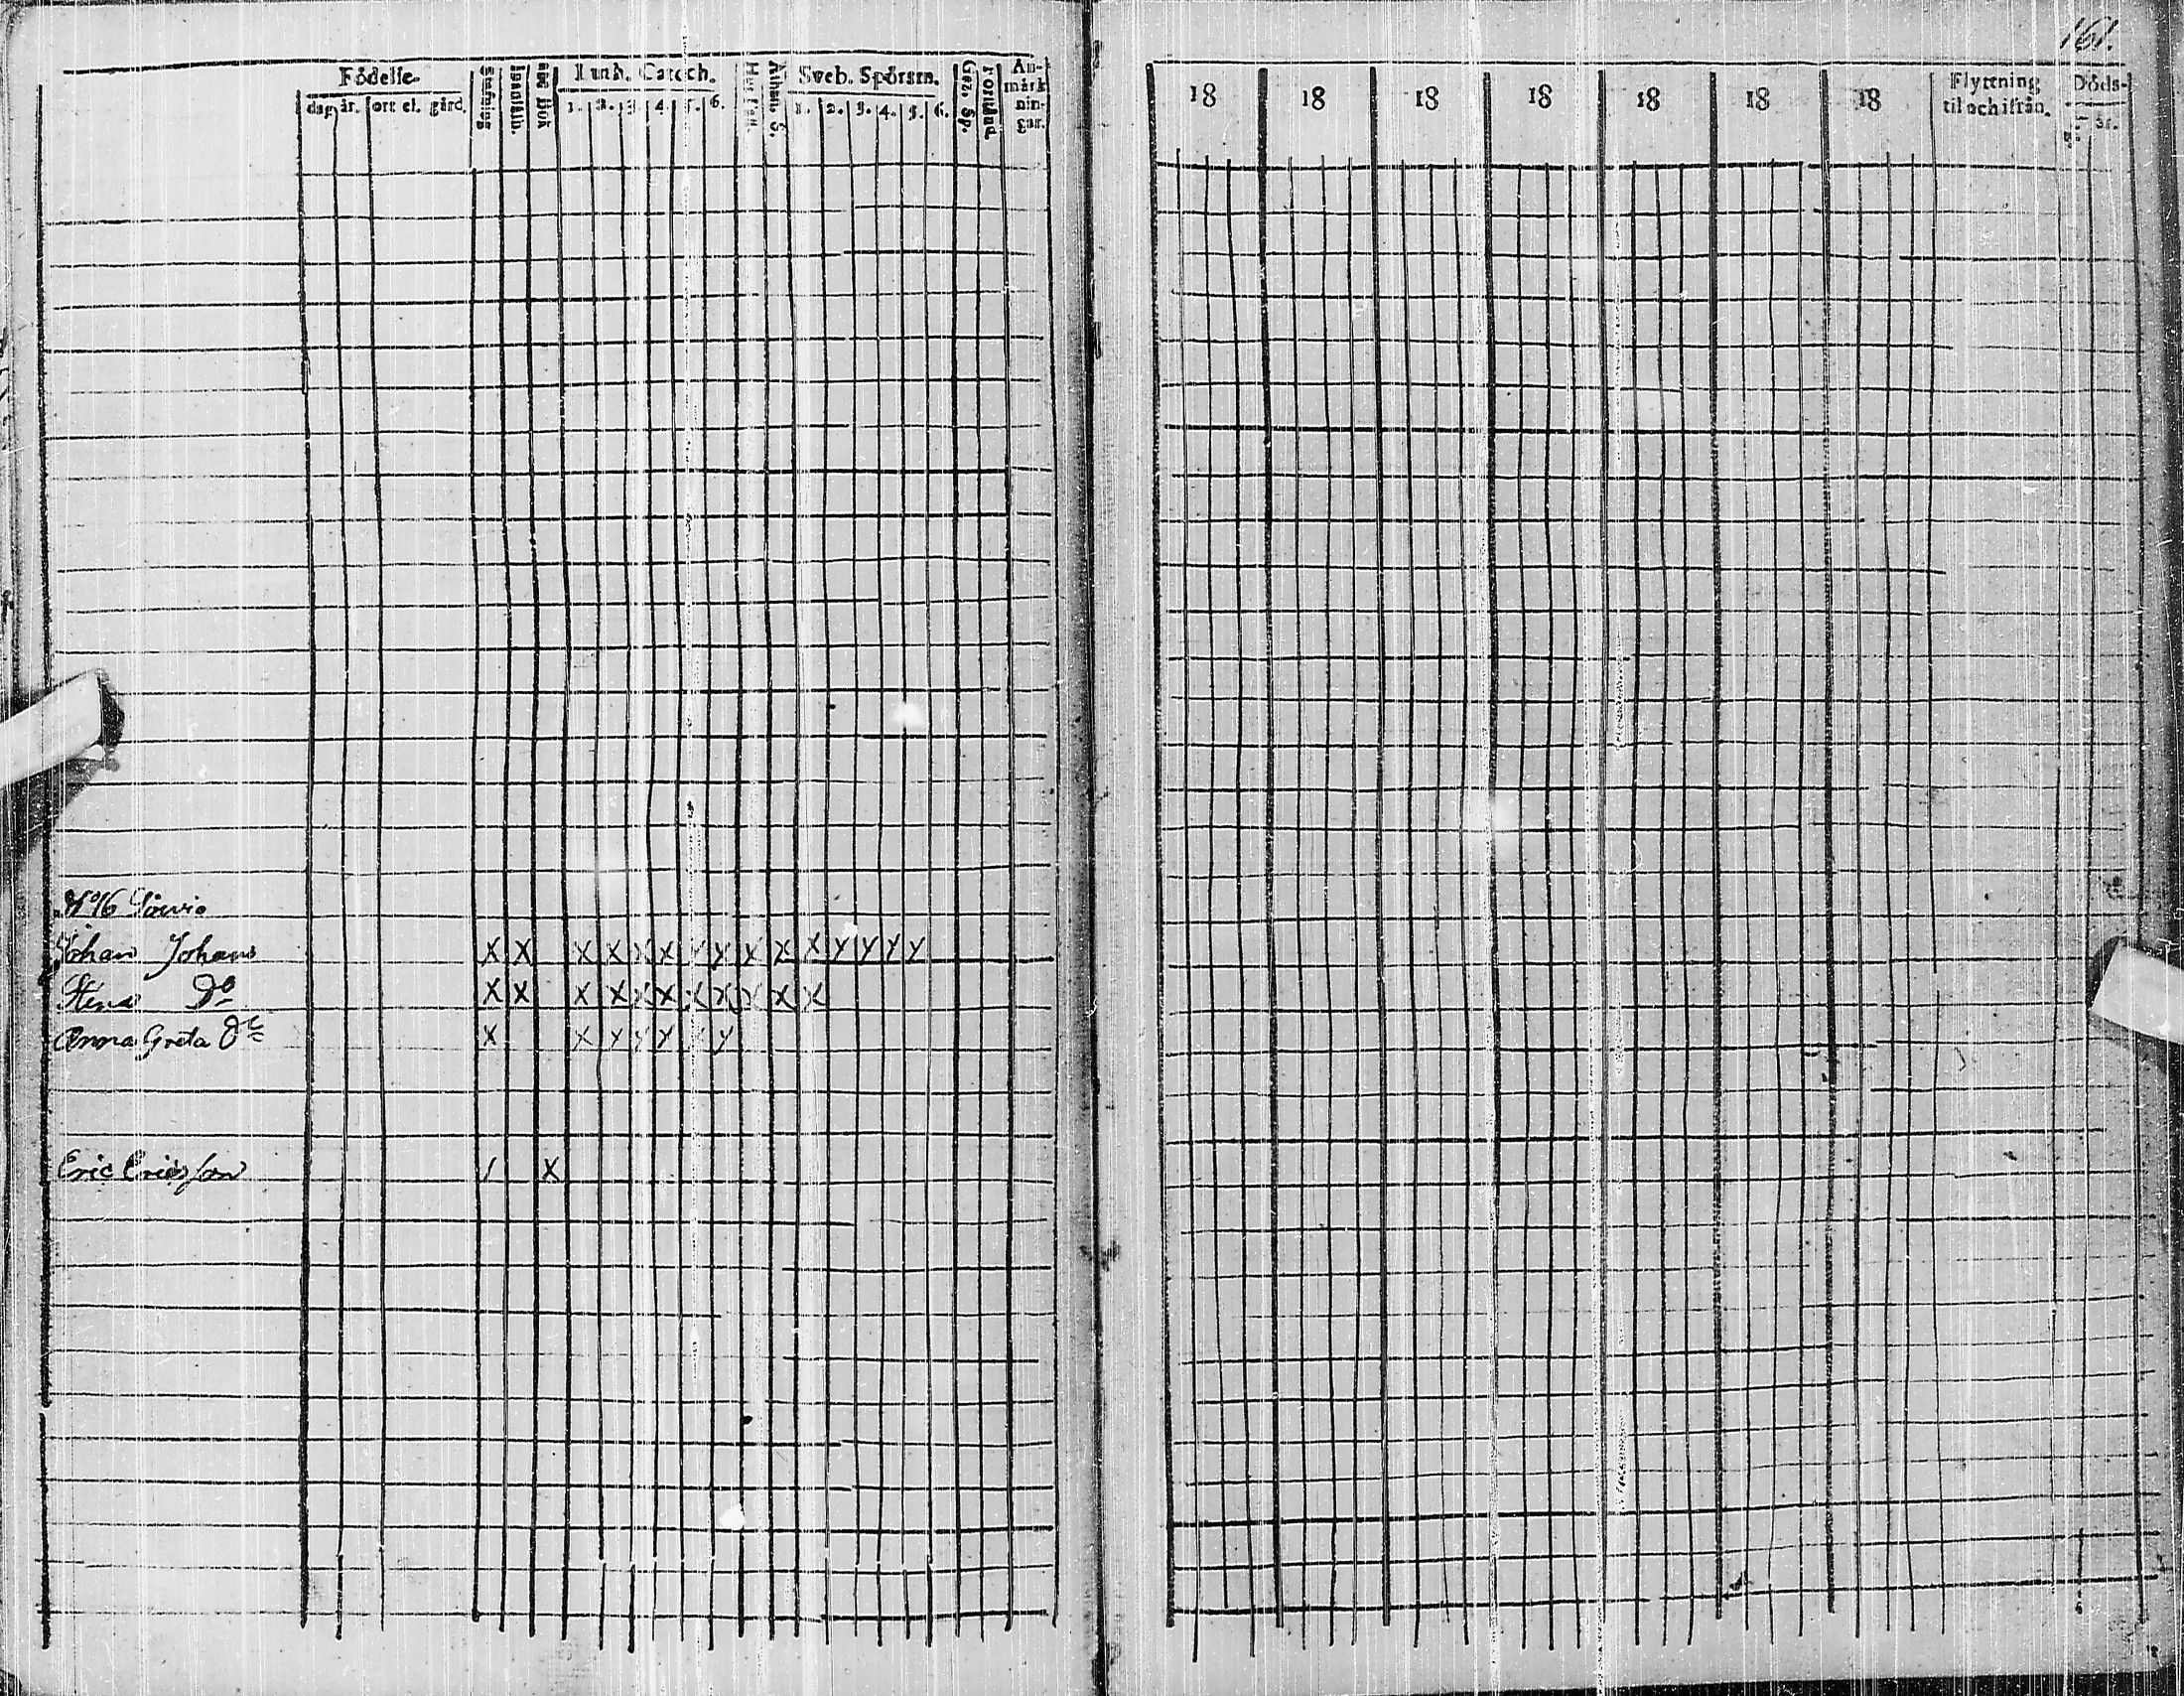 161.
Födelse- Luth. Catech. Sveb. Spörsm. An-
dag. år. ort el. gård. Stafning Innanläsn. Hus Tafl. Athan. S. Gez. Sp. Förstånd märk
1. 2. 3. 4. 5. 6. 1. 2. 3. 4. 5. 6. nin-
gar.
18 18 18 18 18 18 18 Flyttning Döds-
til och ifrån. år.
Johan Johans X X X X X X Y Y X X X Y Y Y Y
Stena Do X X X X X X X X X X X
Anna Greta Do X X Y Y Y Y Y
Eric Ericsson / X